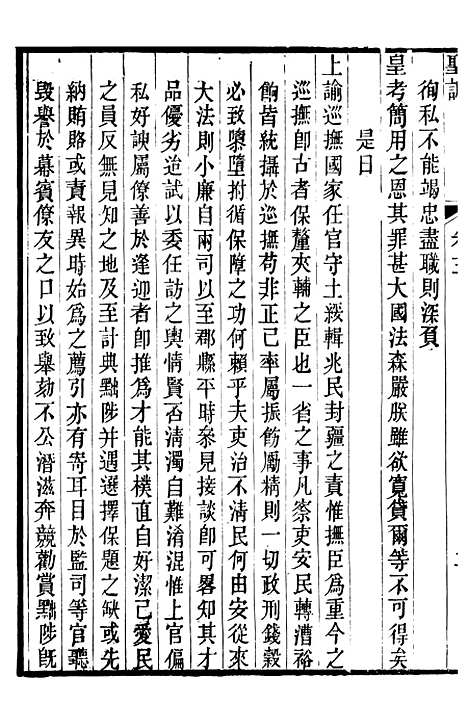 聖訓
徇私不能竭忠盡職則深負
皇考簡用之恩其罪甚大國法森嚴朕雖欲寬貸爾等不可得矣
是日
上諭巡撫國家任官守土綏輯兆民封疆之責惟撫臣為重今之
巡撫即古者保釐夾輔之臣也一省之事凡察吏安民轉漕裕
餉皆統攝於巡撫苟非正己率屬振飭勵精則一切政刑錢穀
必致隳墮拊循保障之功何賴乎夫吏治不清民何由安從來
大法則小廉自兩司以至郡縣平時叅見接談即可畧知其才
品優劣迨試以委任訪之輿情賢否清濁自難淆混惟上官偏
私好諛屬僚善於逢迎者即推為才能其樸直自好潔己愛民
之員反無見知之地及至計典黜陟并遇選擇保題之缺或先
納賄賂或責報異時始為之薦引亦有寄耳目於監司等官聽
毀譽於幕賓僚友之口以致舉劾不公潛滋奔競勸賞黜陟旣